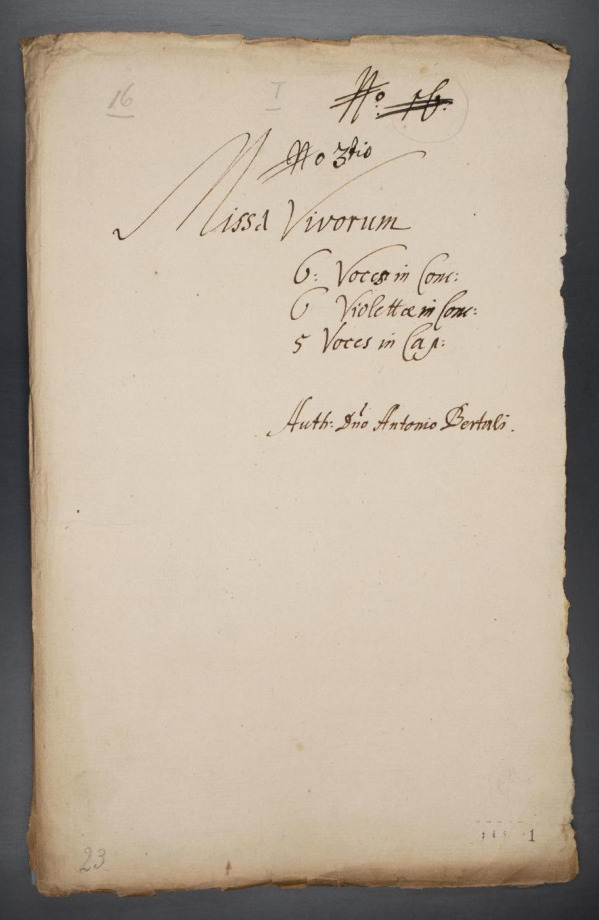 16 I No: 16:
No 3tio
Missa Vivorum
6: Voces in Conc:
6 Violettæ in Conc:
5 Voces in Cap:
Auth: Dno Antonio Bertali.
1
23